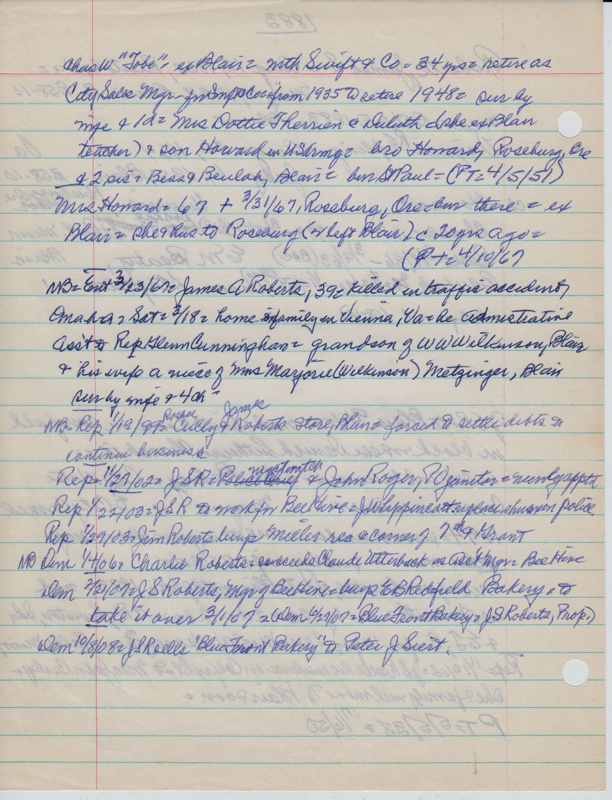 Chas W "Tobe", ex Blair = with Swift & Co = 34 yrs = retire as
City Sales Mgr = from 1935 to retire 1948 = sur by
wife & 1d = Mrs Dottie Therrien Duluth (she ex Blair
teacher) & son Howard in US Army = bro Howard, Roseburg, Ore
& 2 sis = Bess & Beulah, Blair = bur St Paul = (PT = 4/5/51)
Mrs Howard = 67 + 3/31/67, Roseburg, Ore = bur there = ex
Blair = she & hus to Roseburg (& left Blair) c 20 yrs ago =
(PT = 4/10/67
NB = Ent 3/23/67 = James A Roberts, 39 = killed in traffic accident,
Omaha = Sat = 3/18 = home & family in Vienna, Va = he administrative
Asst to Rep Glenn Cunningham = grandson of W W Wilkinson, Blair
& his wife a niece of Mrs Marjorie (Wilkinson) Metzinger, Blair
sur by wife & 4ch
NB = Rep Culley & James Roberts store, Blair = forced to settle debts &
continue business
Rep = 1/27/02 = J S R = nightwatch & John Roger, PO janitor = newly appt
Rep 1/22/03 = J S R to work for Bee Hive = J Whippincott replace him on police
Rep 1/29/03 = Jim Roberts buys Miller res = corner of 7th & Grant
NB Dem 1/4/06 = Charlie Roberts = succeeds Claude Utterback as Asst Mgr = Bee Hive
Dem 2/21/07 = J S Roberts, Mgr of Bee Hive = buys E B Redfield Bakery = to
take it over 3/1/07 = (Dem 6/27/07 = Blue Front Bakery = J S Roberts, Prop)
Dem 10/8/08 = J S R sells "Blue Front Bakery" to Peter J Siert,